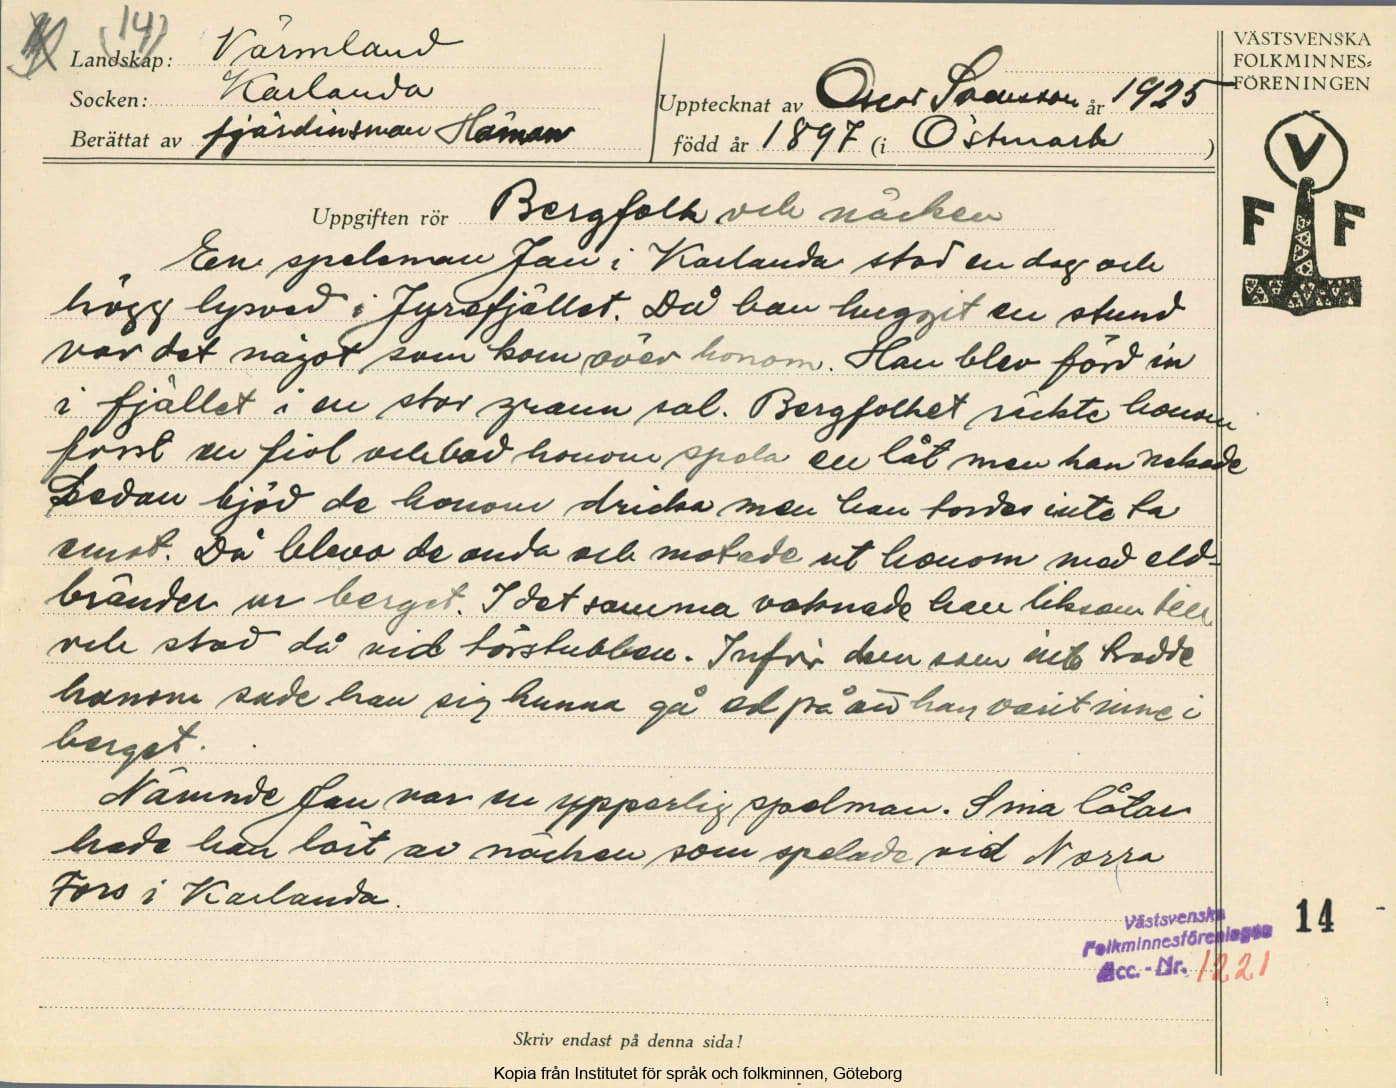 14)
Landskap: Värmland
Socken: Karlanda
Berättat av fjärdinsman Håman
Upptecknat av Oscar Svensson år 1925
född år 1897 (i Östmark )
VÄSTSVENSKA
FOLKMINNES-
FÖRENINGEN
V
F F
Uppgiften rör Bergfolk och näcken
En speleman Jan i Karlanda stod en dag och
högg lysved i Jyrefjället. Då han huggit en stund
var det något som kom över honom. Han blev förd in
i fjället i en stor grann sal. Bergfolket räckte honom
först en fiol och bad honom spela en låt men han nekade
Sedan bjöd de honom dricka men han tordes inte ta
emot. Då blevo de onda och motade ut honom med eld-
bränder ur berget. I det samma vaknade han liksom till
och stod då vid törstubben. Inför dem som inte trodde
honom sade han sig kunna gå ed på att han varit inne i
berget.
Nämnde Jan var en ypperlig spelman. Sina låtar
hade han lärt av näcken som spelade vid Norra
Fors i Karlanda.
Västsvenska
Folkminnesföreningen
Acc.-Nr. 1221
14
Skriv endast på denna sida!
Kopia från Institutet för språk och folkminnen, Göteborg